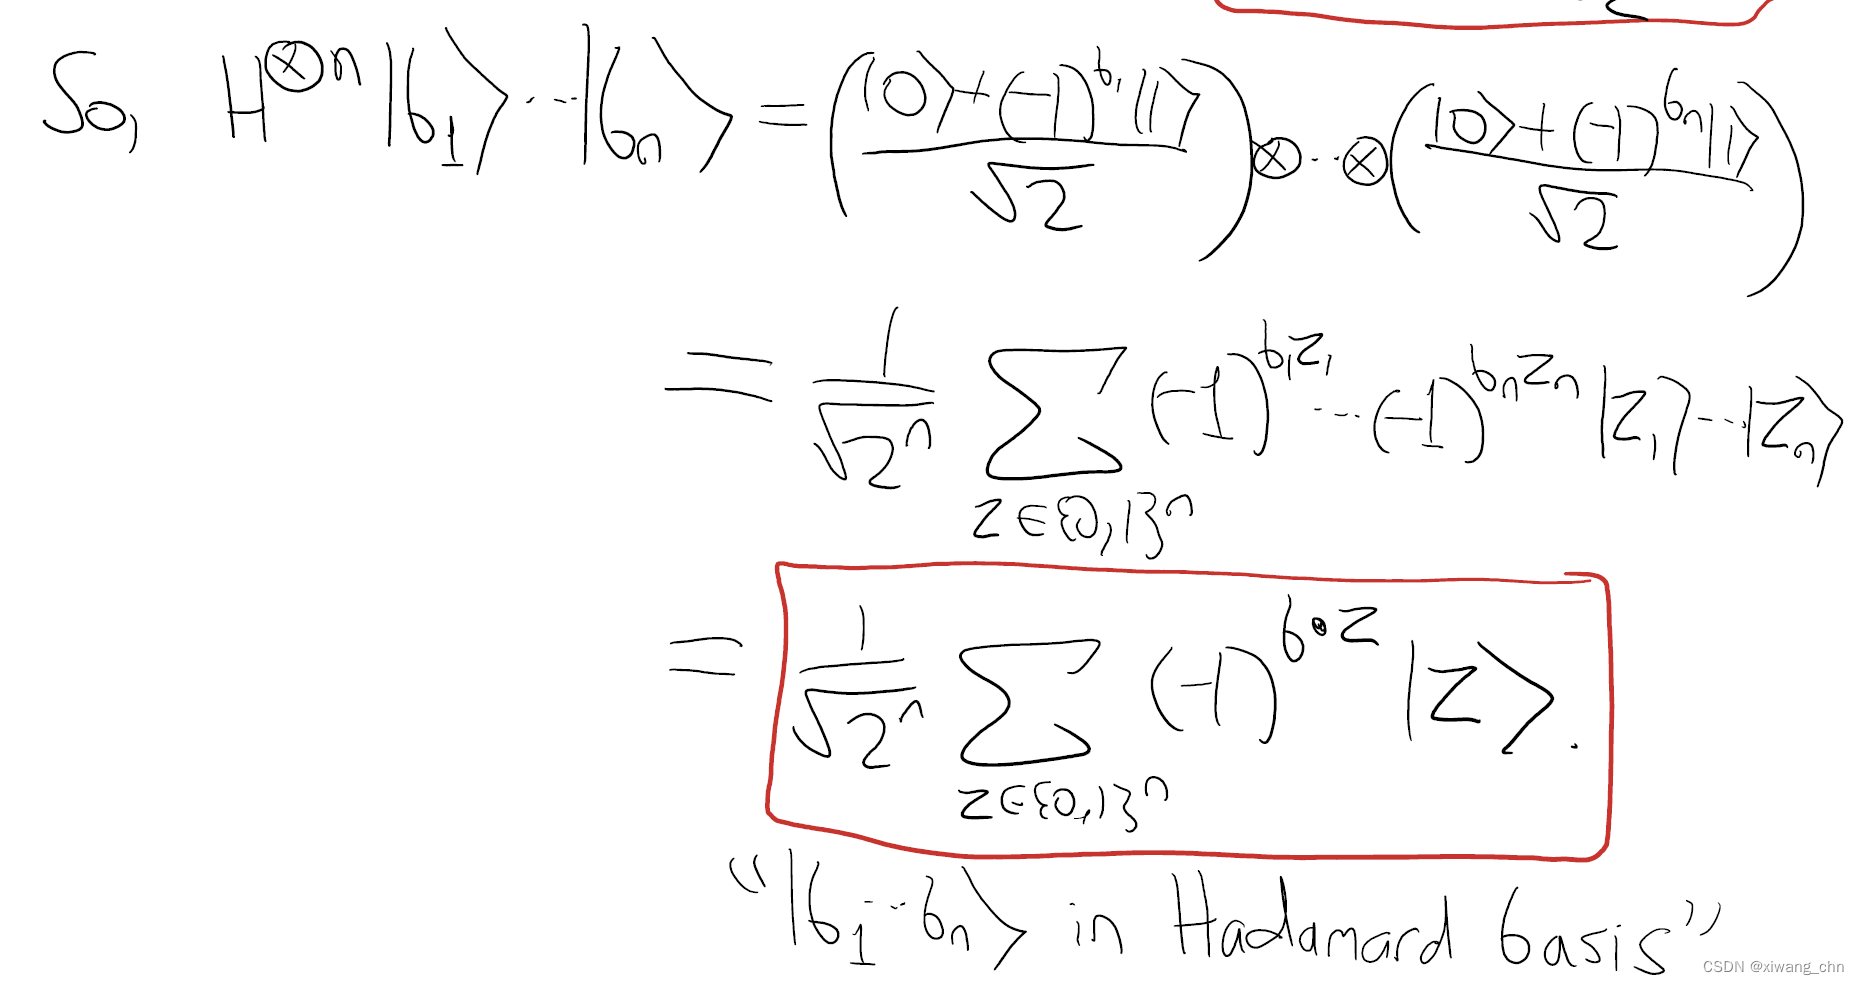 So, H^{⊗n} |b_1⟩ ... |b_n⟩ = ( (|0⟩ + (-1)^{b_1} |1⟩) / √2 ) ⊗ ... ⊗ ( (|0⟩ + (-1)^{b_n} |1⟩) / √2 )
= 1/√2^n ∑_{z∈{0,1}^n} (-1)^{b_1z_1} ... (-1)^{b_nz_n} |z_1⟩ ... |z_n⟩
= 1/√2^n ∑_{z∈{0,1}^n} (-1)^{b•z} |z⟩.
"|b_1 ... b_n⟩ in Hadamard basis"
CSDN @xiwang_chn